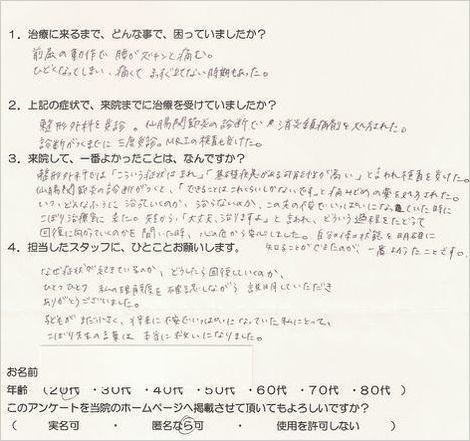 1．治療に来るまで、どんな事で、困っていましたか？
前屈の動作で腰がズキンと痛む。
ひどくなってしまい、痛くてまっすぐ立てない時期もあった。
2．上記の症状で、来院までに治療を受けていましたか？
整形外科を受診。仙腸関節炎の診断で消炎鎮痛剤を処方された。
診断がつくまでに三度受診。MRIの検査も受けた。
3．来院して、一番よかったことは、なんですか？
整形外科では「こういう症状はまれ」「基礎疾患がある可能性が高い」と言われ検査を受けた。
仙腸関節炎の診断がつくと、「できることはこれくらいしかないです」と痛み止めの薬を処方された。
いつ、どんなふうに治っていくのか、治らないのか、この先の不安でいっぱいになっていた時に
こばり治療室に来た。先生から「大丈夫、治りますよ」と言われ、どういう過程をたどって
回復に向かっていくのかを聞いた時、心の底から安心しました。自分の体の状態を明確に
知ることができたのが、一番よかったことです。
4．担当したスタッフに、ひとことお願いします。
なぜ症状が起きているのか、どうしたら回復していくのか、
ひとつひとつ私の理解度を確認しながら説明していただき
ありがとうございました。
子どもがまだ小さく、将来に不安でいっぱいになっていた私にとって、
こばり先生の言葉は本当に救いになりました。
お名前
年齢（20代・30代・40代・50代・60代・70代・80代）
このアンケートを当院のホームページへ掲載させて頂いてもよろしいですか？
（　実名可　・　匿名なら可　・　使用を許可しない　）